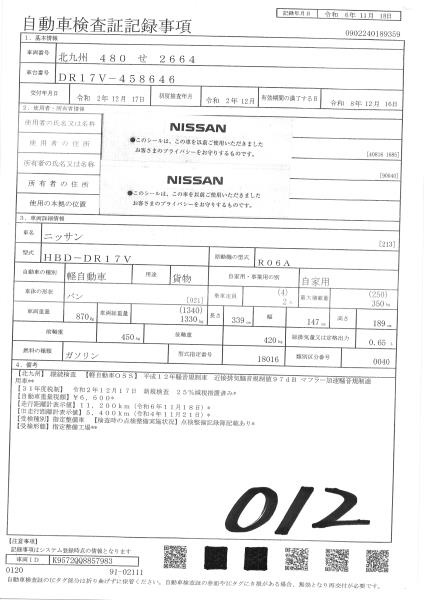 記録年月日 令和 6年11月 18日
自動車検査証記録事項
0902240189359
1．基本情報
車両番号 北九州 480 せ 2664
車台番号 DR17V-458646
交付年月日 令和 2年12月 17日 初度検査年月 令和 2年12月 有効期間の満了する日 令和 8年12月 16日
2．使用者・所有者情報
使用者の氏名又は名称
使用者の住所
所有者の氏名又は名称
所有者の住所
使用の本拠の位置
NISSAN
●このシールは、この車を以前ご使用いただきました
お客さまのプライバシーをお守りするものです。
[40816 1685]
[90040]
NISSAN
●このシールは、この車を以前ご使用いただきました
お客さまのプライバシーをお守りするものです。
3．車両詳細情報
車名 ニッサン [213]
型式 HBD-DR17V 原動機の型式 R06A
自動車の種別 軽自動車 用途 貨物 自家用・事業用の別 自家用
車体の形状 バン [021] 乗車定員 (4) 2人 最大積載量 (250) 350kg
車両重量 870kg 車両総重量 (1340) 1330kg 長さ 339cm 幅 147cm 高さ 189cm
前軸重 450kg 後軸重 420kg 総排気量又は定格出力 0.65L
燃料の種類 ガソリン 型式指定番号 18016 類別区分番号 0040
4．備考
【北九州】 継続検査 【軽自動車OSS】 平成12年騒音規制車 近接排気騒音規制値97dB マフラー加速騒音規制適
用車**
【31年度税制】 令和2年12月17日 新規検査 25%減税措置済み**
【自動車重量税額】¥6,600*
【走行距離計表示値】11,200km（令和6年11月18日）*
【旧走行距離計表示値】5,400km（令和4年11月21日）
【受検種別】指定整備車 【検査時の点検整備実施状況】点検整備記録簿記載あり*
【受検形態】指定整備工場**
012
【注意事項】
記録事項はシステム登録時点の情報となります
車両ID K9572QQ8857983
0120 91-02111
自動車検査証のICタグ部分は折り曲げずに保管ください。自動車検査証の券面やICタグにき損がある場合、無効となり再交付が必要です。